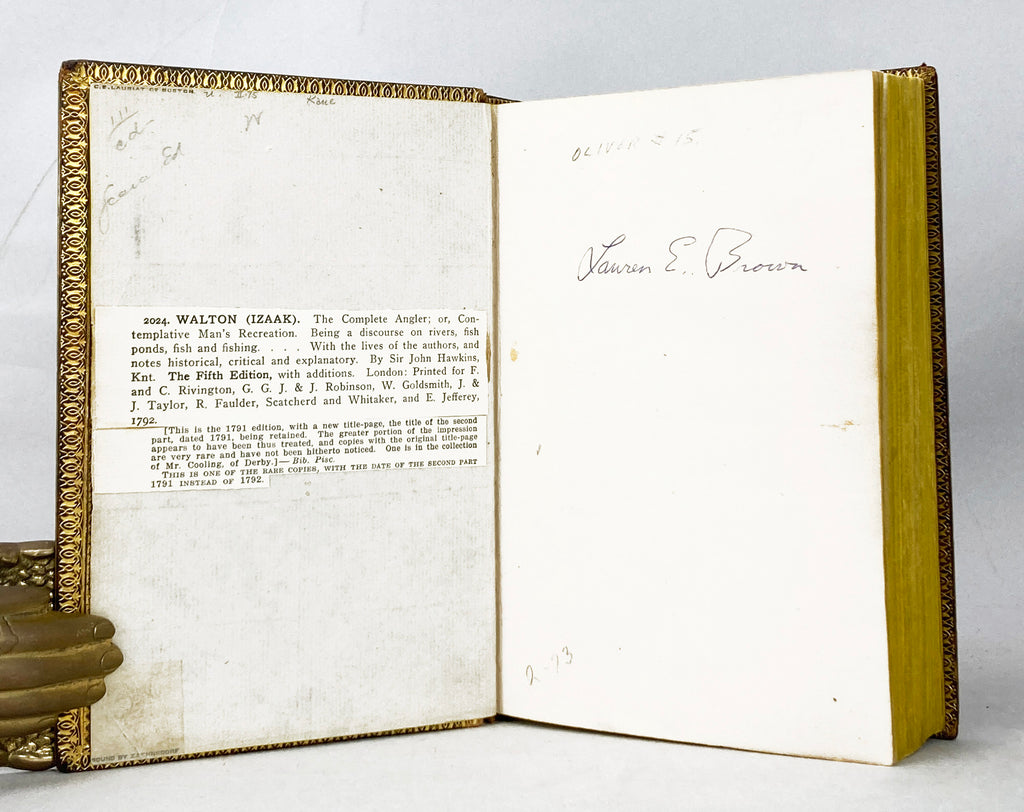 C.E. LAURIAT Cº BOSTON
Kane
W
111
ed-
Ed
2024. WALTON (IZAAK). The Complete Angler; or, Con-
templative Man's Recreation. Being a discourse on rivers, fish
ponds, fish and fishing. . . . With the lives of the authors, and
notes historical, critical and explanatory. By Sir John Hawkins,
Knt. The Fifth Edition, with additions. London: Printed for F.
and C. Rivington, G. G. J. & J. Robinson, W. Goldsmith, J. &
J. Taylor, R. Faulder, Scatcherd and Whitaker, and E. Jefferey,
1792.
[This is the 1791 edition, with a new title-page, the title of the second
part, dated 1791, being retained. The greater portion of the impression
appears to have been thus treated, and copies with the original title-page
are very rare and have not been hitherto noticed. One is in the collection
of Mr. Cooling, of Derby.]—Bib. Pisc.
THIS IS ONE OF THE RARE COPIES, WITH THE DATE OF THE SECOND PART
1791 INSTEAD OF 1792.
BOUND BY ZAEHNSDORF
OLIVER 15.
Lauren E. Brown
2-93